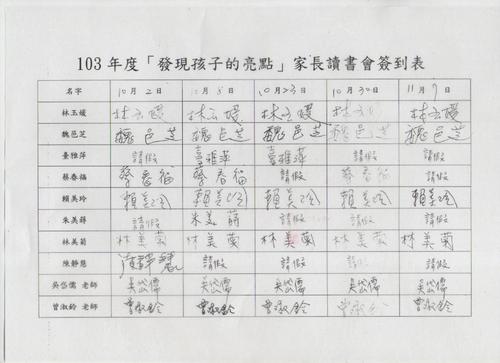 103 年度「發現孩子的亮點」家長讀書會簽到表
名字 10月2日 10月23日 10月30日 11月
林玉媛 林玉媛 林玉媛 林玉媛 林玉媛 林玉媛
魏邑芝 魏邑芝 魏邑芝 魏邑芝 魏邑芝 魏邑芝
臺雅萍 請假 臺雅萍 臺雅萍 請假 請假
蔡春福 蔡春福 蔡春福 請假 蔡春福 請假
賴美玲 賴美玲 賴美玲 賴美玲 賴美玲 賴美玲
朱美蒔 請假 朱美蒔 請假 請假 請假
林美菊 林美菊 林美菊 林美菊 林美菊 林美菊
陳靜慧 陳靜慧 請假 請假 請假 請假
吳岱儒 老師 吳岱儒 吳岱儒 吳岱儒 吳岱儒 吳岱儒
曾淑鈴 老師 曾淑鈴 曾淑鈴 曾淑鈴 曾淑鈴 曾淑鈴